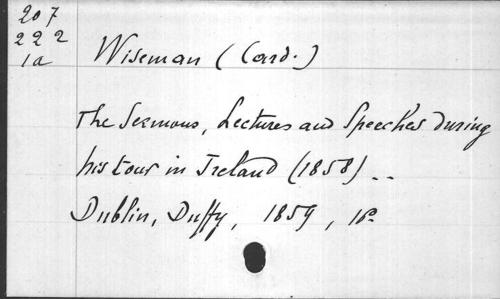 207
222
1a
Wiseman (Card.)
The Sermons, Lectures and Speeches during
his tour in Ireland (1858) ..
Dublin, Duffy, 1859, 16º